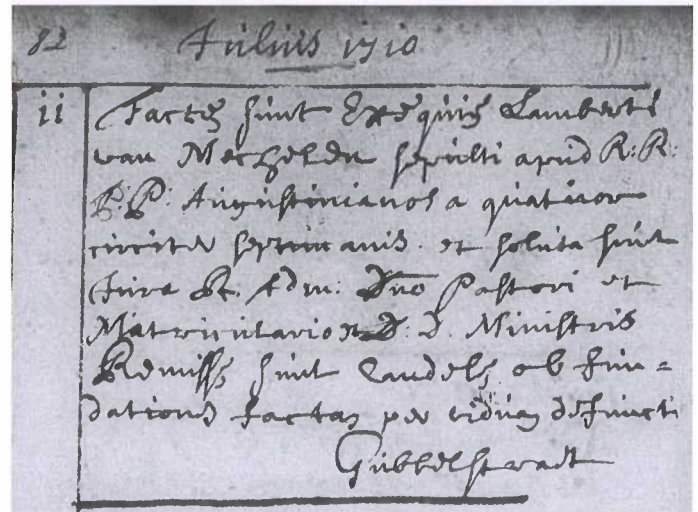 82 Julius 1710
11 Factę sunt Exequię Lamberti
van Mechelen sepulti apud R: R:
P: P: Augustinianos a quatuor
circiter septimanis et soluta sunt
Jura R. Adm: Dno Pastori et
Matriculario et D. D. Ministris
Remissę sunt Candelę ob fun=
dationes factas per viduam defuncti
Gubbelstradt